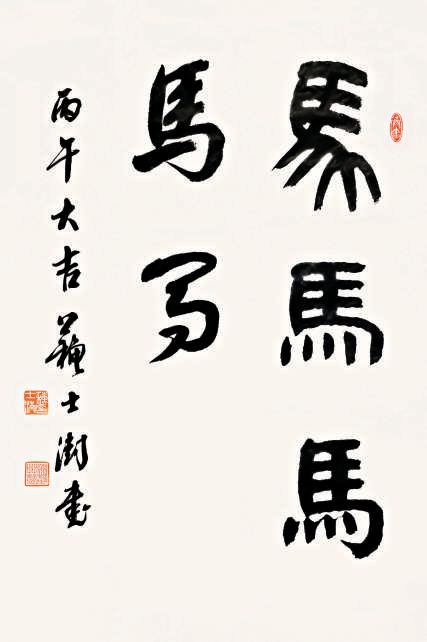 馬馬馬
馬馬
丙午大吉蘇士澍書